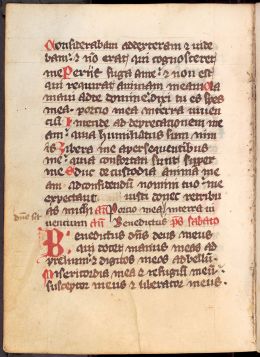 Considerabam addexteram & vide
bam: & nō erat qui cognosceret
me Periit fuga ame: & non est
qui requirat animam meam Cla
mavi adte domine dixi tu es spes
mea portio mea interra viven
ciū Intende addeprecationem me
am: quia humiliatus sum nim
is Libera me apersequentibus
me: quia confortati sunt super
me Educ de custodia animā me
am adconfitendū nomini tuo me
expectant iusti donec retribu
as michi añ Portio mea interra vi
vencium añ Benedictus ps sabato
Benedictus dñs deus meus
qui docet manus meas ad
prelium: & digitos meos adbellū
Misericordia mea & refugiū meū:
susceptor meus & liberator meus